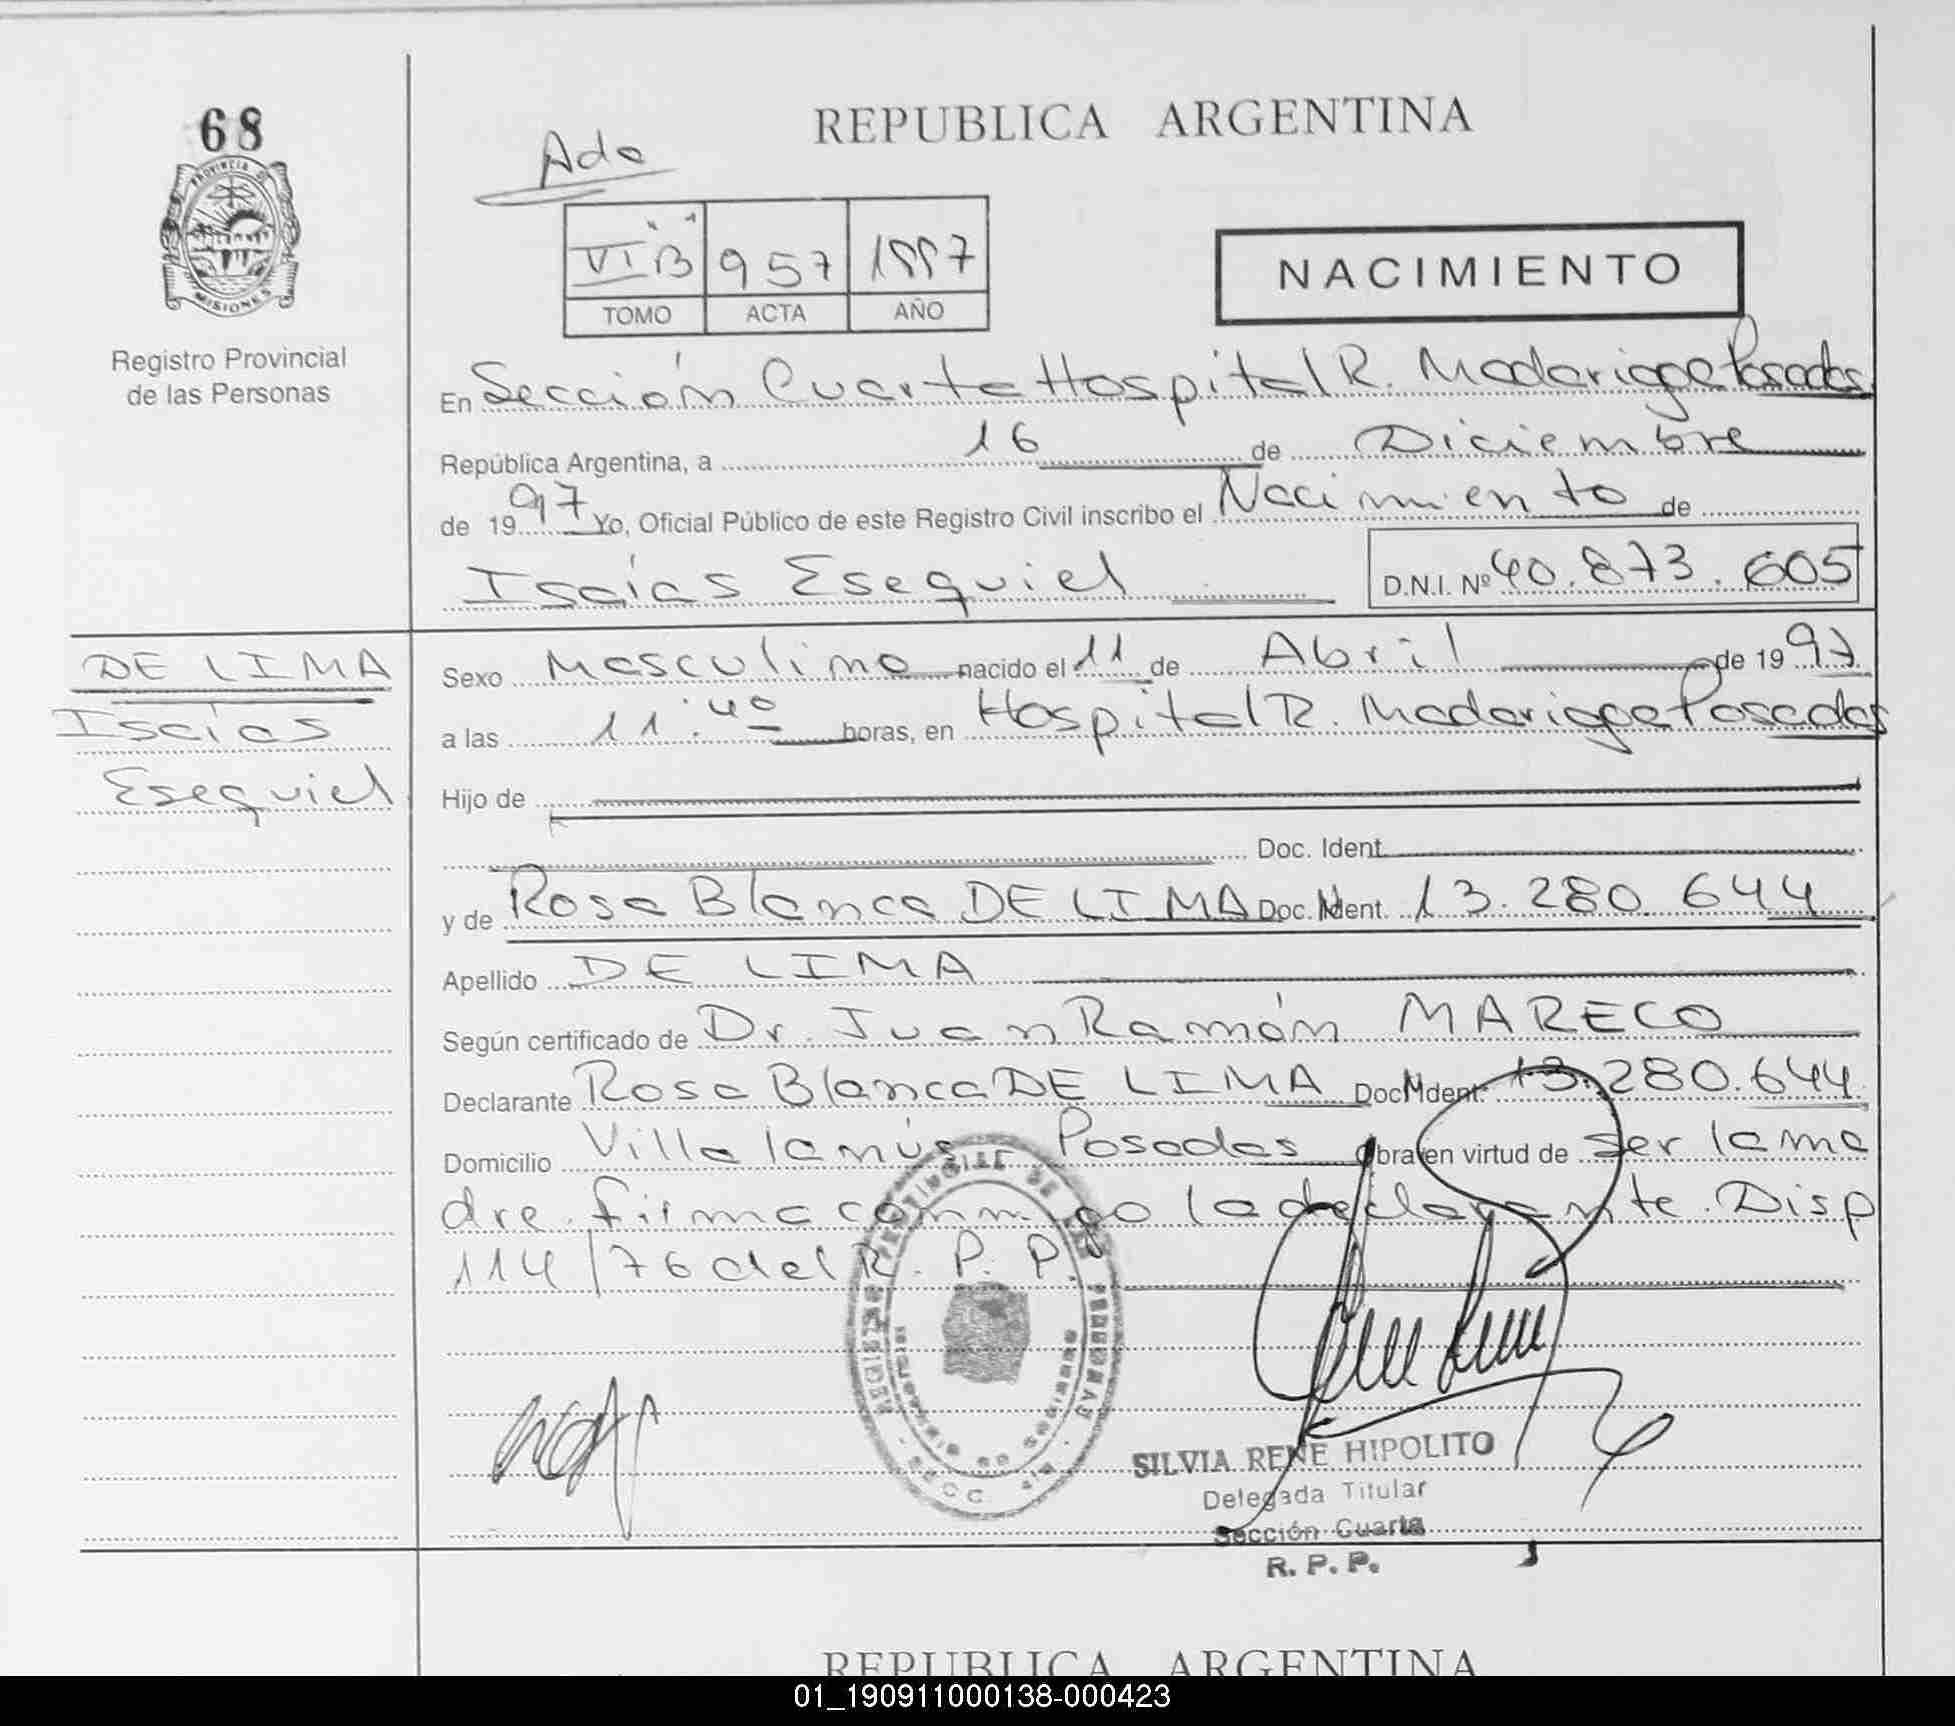 68
PROVINCIA D
MISIONES
Registro Provincial
de las Personas
REPUBLICA ARGENTINA
VI "B" 957 1997
TOMO ACTA AÑO
NACIMIENTO
En Sección Cuarta Hospital R. Madariaga Posadas
República Argentina, a 16 de Diciembre
de 1997 Yo, Oficial Público de este Registro Civil inscribo el Nacimiento de
Isaías Esequiel D.N.I. Nº 40.873.605
DE LIMA
Isaías
Esequiel
Sexo Masculino nacido el 11 de Abril de 1997
a las 11:40 horas, en Hospital R. Madariaga Posadas
Hijo de
Doc. Ident.
y de Rosa Blanca DE LIMA Doc. Ident. 13.280.644
Apellido DE LIMA
Según certificado de Dr. Juan Ramón MARECO
Declarante Rosa Blanca DE LIMA Doc. Ident. 13.280.644
Domicilio Villa lanús Posadas Obra en virtud de ser la ma
dre. firma conmigo la declarante. Disp
114/76 del R. P. P.
SILVIA RENE HIPOLITO
Delegada Titular
Sección Cuarta
R. P. P.
REPUBLICA ARGENTINA
01_190911000138-000423